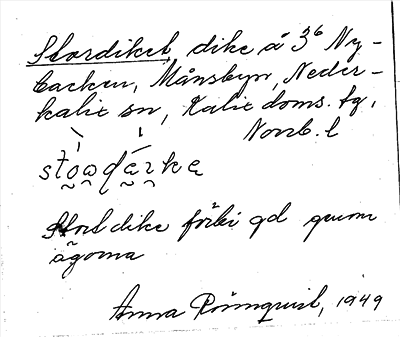 Stordiket, dike å 3⁶ Ny-
backen, Månsbyn, Neder-
kalix sn, Kalix doms. tg,
Norrb. l
Stort dike förbi gd genom
ägorna
Anna Rönnquist, 1949